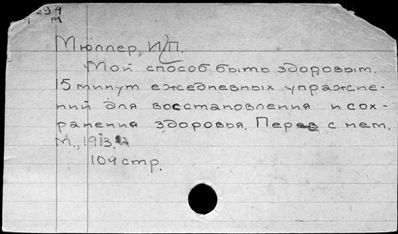 294
М
Мюллер, И.П.
Мой способ быть здоровым.
15 минут ежедневных упражне-
ний для восстановления и сох-
ранения здоровья. Перев с нем.
М., 1913.
104 стр.